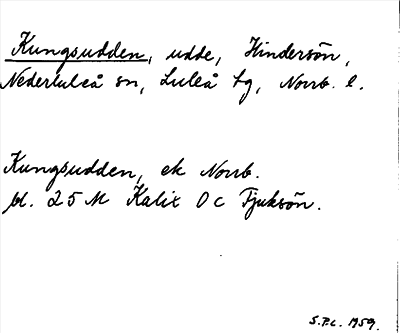 Kungsudden, udde, Hindersön,
Nederluleå sn, Luleå tg, Norrb. l.
Kungsudden, ek Norrb.
bl. 25 M Kalix Oc Tjuksön.
S.P.L. 1959.